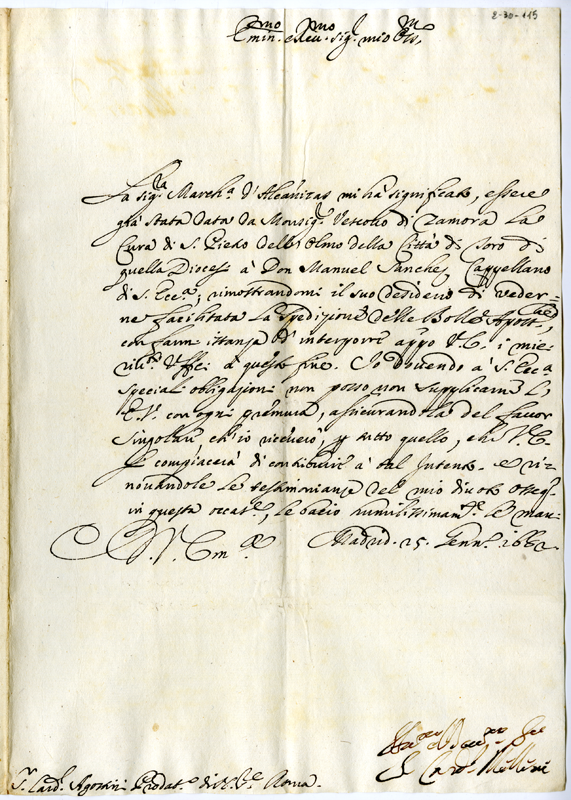 2-30-115
Emin.mo e Reu.mo sig.r mio
La sig.ra March.a d'Alcanizas mi ha significato, essere
già stata data da Monsig.r Vescovo di Zamora la
Cura di S. Piedo dell'Olmo della Città di Toro di
quella Diocesi à Don Manuel Sanchez Cappellano
di S. Ecc.a, rimostrandomi il suo desiderio di veder=
ne facilitata la spedizione delle Bolle Apost.che
con farmi istanza d'interporre app.o V.E. i miei
Uffici à questo fine. Io devendo à S. Ecc.a
special obligazioni non posso non supplicarne l'
E.V. con ogni premura, assicurandola del favor
singolare ch'io riceverò, p tutto quello, che V.E.
si compiacerà di contribuire à tal Intento. e ri=
novandole le testimonianze del mio divoto osseq.
in questa occas.e, le bacio humilissimam.te le man.
D.V. Em.
Madrid. 25. Genn. 1682
S. Card. Mellini
S.r Card. Agostini Prodat.o di N.S.e Roma.